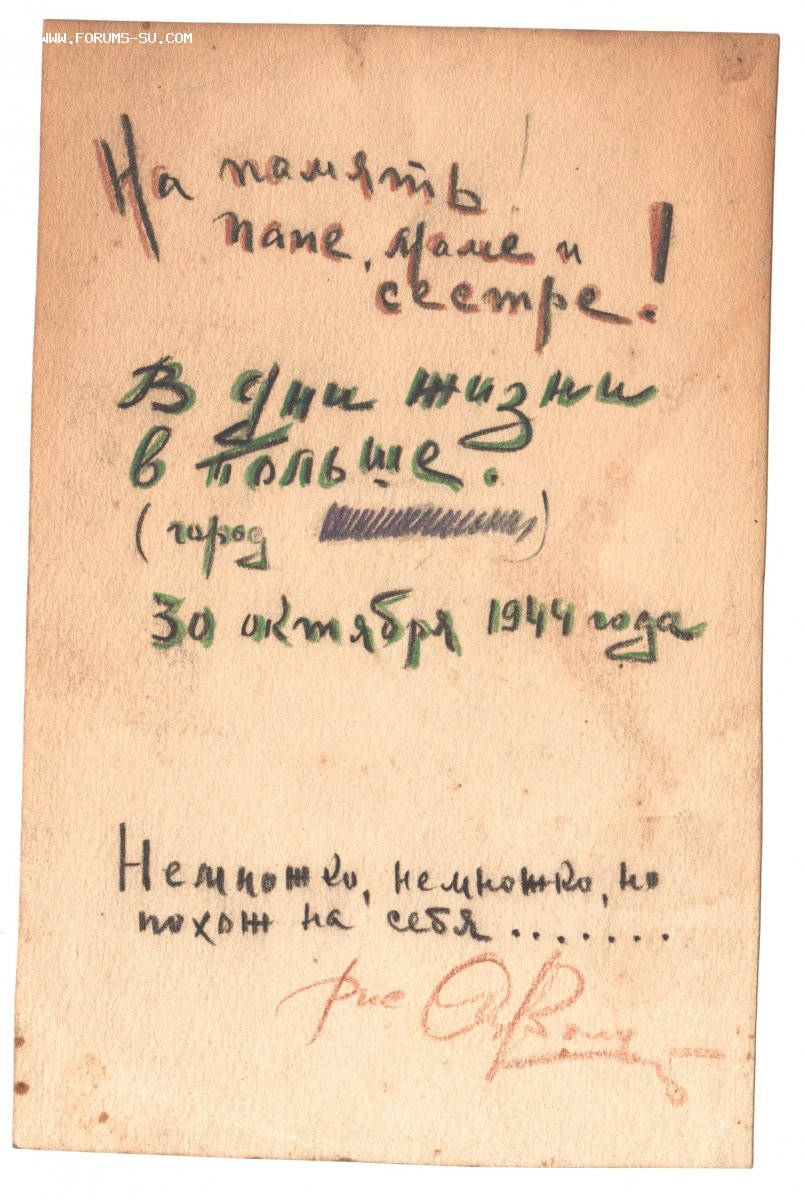 WWW.FORUMS-SU.COM
На память!
папе, маме и
сестре!
В дни жизни
в Польше.
(город )
30 октября 1944 года
Немножко, немножко, но
похож на себя.......
рис